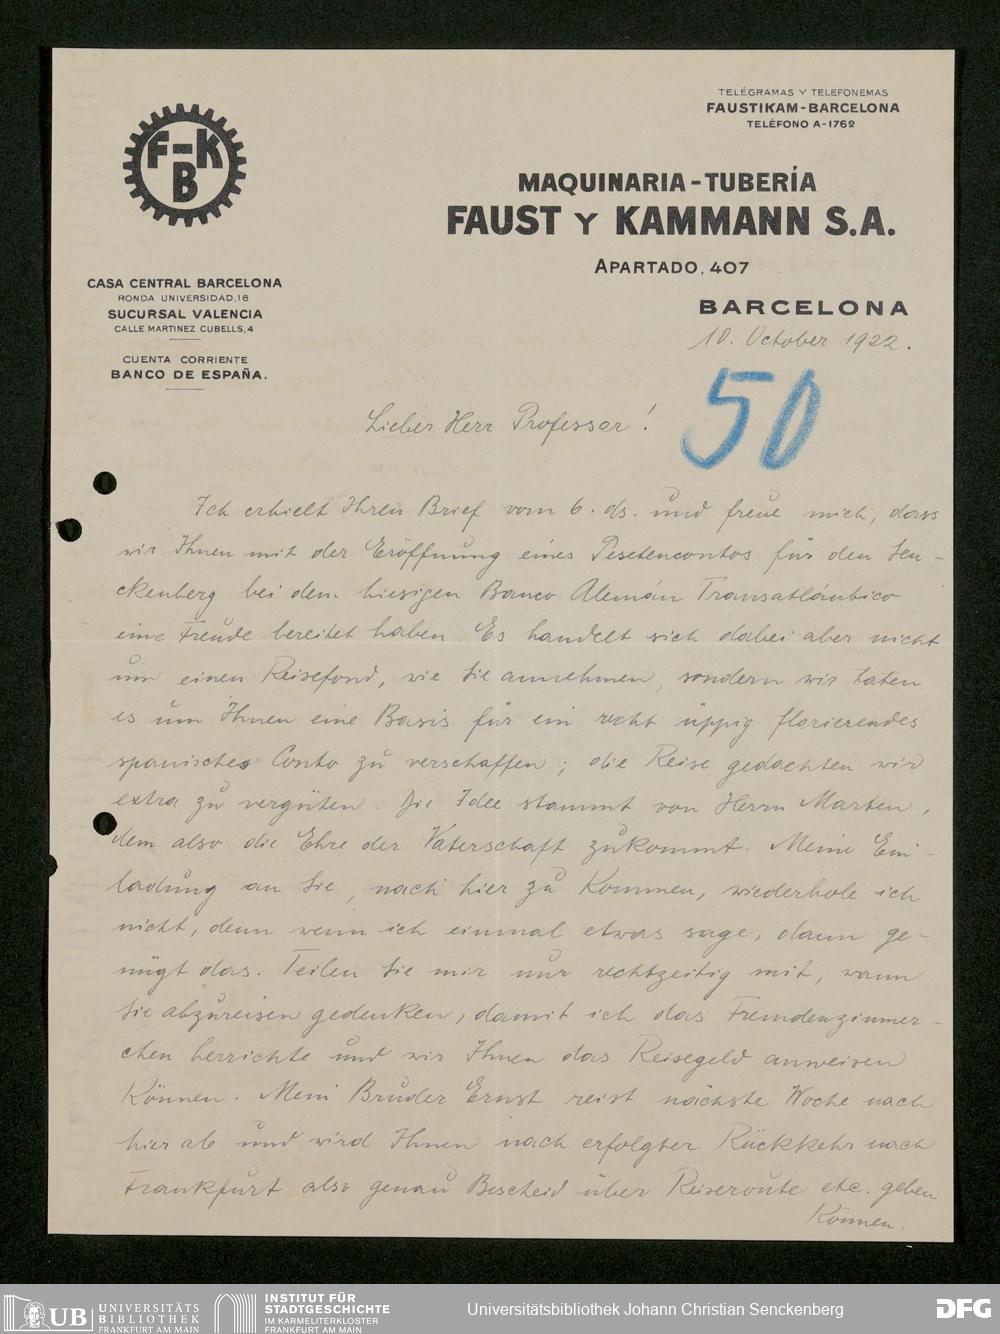 F-K
B
TELÉGRAMAS Y TELEFONEMAS
FAUSTIKAM-BARCELONA
TELÉFONO A-1762
MAQUINARIA-TUBERÍA
FAUST Y KAMMANN S.A.
APARTADO, 407
BARCELONA
CASA CENTRAL BARCELONA
RONDA UNIVERSIDAD, 16
SUCURSAL VALENCIA
CALLE MARTINEZ CUBELLS, 4
CUENTA CORRIENTE
BANCO DE ESPAÑA.
10. October 1922.
50
Lieber Herr Professor!
Ich erhielt Ihren Brief vom 6. ds. und freue mich, dass
wir Ihnen mit der Eröffnung eines Pesetencontos für den Sen-
ckenberg bei dem hiesigen Banco Alemán Transatlántico
eine Freude bereitet haben. Es handelt sich dabei aber nicht
um einen Reisefond, wie Sie annehmen, sondern wir taten
es um Ihnen eine Basis für ein recht üppig florierendes
spanisches Conto zu verschaffen; die Reise gedachten wir
extra zu vergüten. Die Idee stammt von Herrn Marten,
dem also die Ehre der Vaterschaft zukommt. Meine Ein-
ladung an Sie, nach hier zu kommen, wiederhole ich
nicht, denn wenn ich einmal etwas sage, dann ge-
nügt das. Teilen Sie mir nur rechtzeitig mit, wann
Sie abzureisen gedenken, damit ich das Fremdenzimmer-
chen herrichte und wir Ihnen das Reisegeld anweisen
können. Mein Bruder Ernst reist nächste Woche nach
hier ab und wird Ihnen nach erfolgter Rückkehr nach
Frankfurt also genau Bescheid über Reiseroute etc. geben
können.
UB UNIVERSITÄTS
BIBLIOTHEK
FRANKFURT AM MAIN
INSTITUT FÜR
STADTGESCHICHTE
IM KARMELITERKLOSTER
FRANKFURT AM MAIN
Universitätsbibliothek Johann Christian Senckenberg
DFG